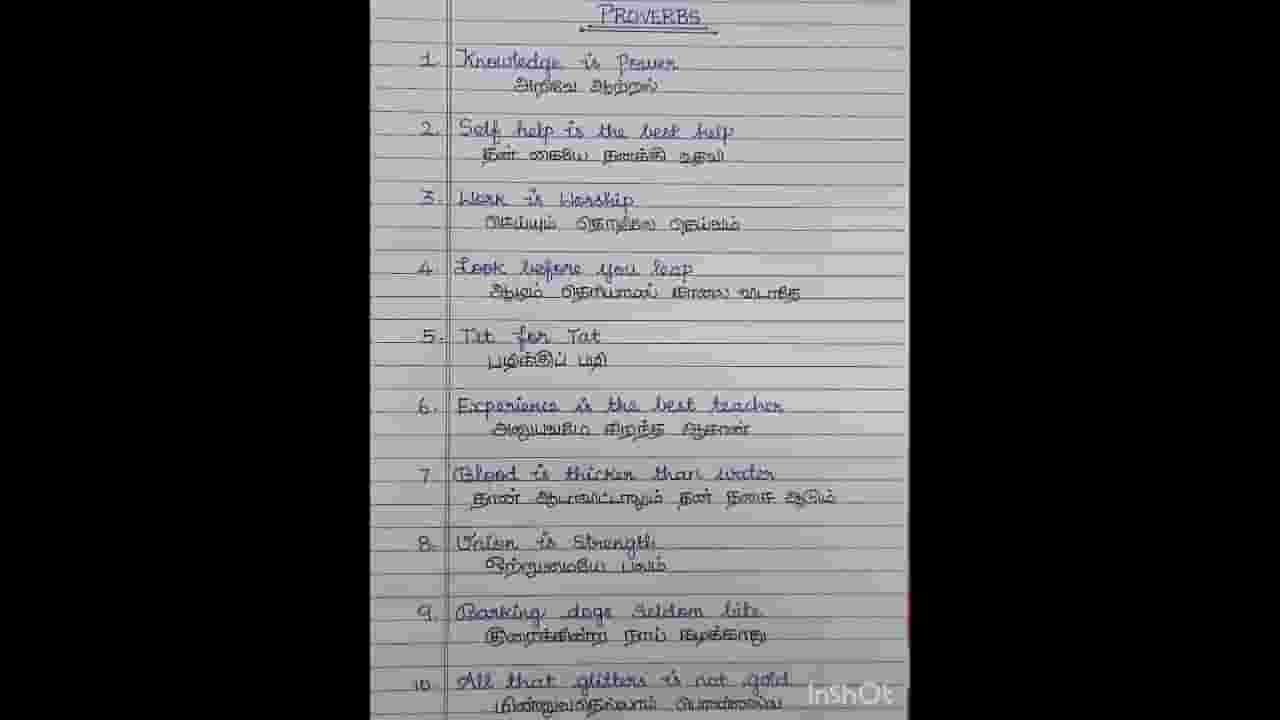 PROVERBS
1. Knowledge is Power
அறிவே ஆற்றல்
2. Self help is the best help
தன் கையே தனக்கு உதவி
3. Work is Worship
செய்யும் தொழிலே தெய்வம்
4. Look before you leap
ஆழம் தெரியாமல் காலை விடாதே
5. Tit for Tat
பழிக்குப் பழி
6. Experience is the best teacher
அனுபவமே சிறந்த ஆசான்
7. Blood is thicker than water
தான் ஆடாவிட்டாலும் தன் தசை ஆடும்
8. Union is Strength
ஒற்றுமையே பலம்
9. Barking dogs seldom bite
குரைக்கின்ற நாய் கடிக்காது
10. All that glitters is not gold
மின்னுவதெல்லாம் பொன்னல்ல
InShOt